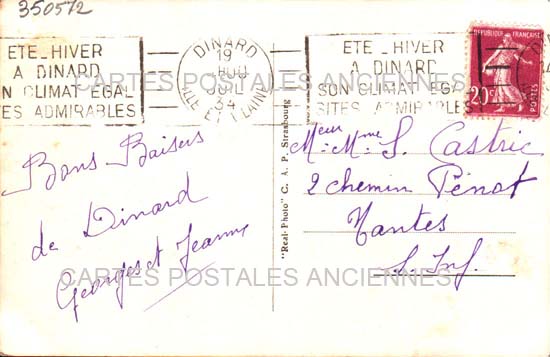 350572
ETE_HIVER
A DINARD
SON CLIMAT EGAL
SITES ADMIRABLES
DINARD
19
34
ILLE ET VILAINE
ETE_HIVER
A DINARD
SON CLIMAT EGAL
SITES ADMIRABLES
REPUBLIQUE FRANÇAISE
20c
POSTES
CARTES POSTALES ANCIENNES
Bons Baisers
de Dinard
Georges et Jeanne
"Real-Photo" C. A. P. Strasbourg
Meur Mme
M. M. S. Castric
2 chemin Pénot
Nantes
L. Inf.
CARTES POSTALES ANCIENNES